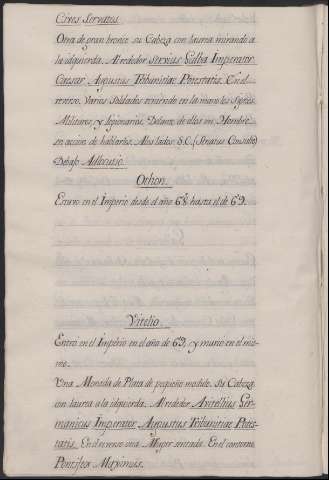 Cives Servatos
Otra de gran bronce su Cabeza con laurea mirando a
la izquierda. Alrededor Servius Galba Imperator
Caesar Augustus Tribunitiae Potestatis. En el
reverso. Varios Soldados teniendo en la mano los Signos
Militares, y legionarios. Delante de ellos un Hombre
en accion de hablarlos. A los lados S.C. (Senatus Consulto)
Debajo Adlocutio.
Othon.
Estuvo en el Imperio desde el año 68. hasta el de 69.
Vitelio.
Entró en el Imperio en el año de 69, y murio en el mis-
mo.
Una Moneda de Plata de pequeño modulo. Su Cabeza
con laurea a la izquierda. Alrededor A. vitellius Ger-
manicus Imperator Augustus Tribunitiae Potes-
tatis. En el reverso una Muger sentada. En el contorno
Pontifex Maximus.